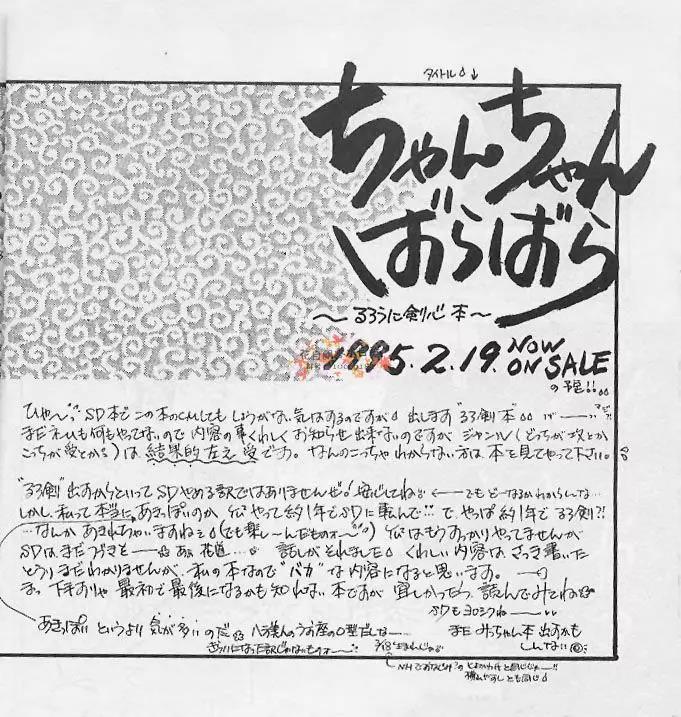 タイトル↓
ちゃんちゃん
ばらばら
～るろうに剣心 本～
1995.2.19. NOW ON SALE
の予定!!
ひゃん SD本でこの本のCMしてもしょうがない気はするのですが 出します "るろ剣"本
まだネームも何もやってないので内容の事くわしくお知らせ出来ないのですが ジャンル(どっちが攻とか
こっちが受とかさ)は結果的左之受です。なんのこっちゃわからない方は、本を見てやって下さい。
"るろ剣"出すからといってSDやめる訳ではありませんぜ! 安心してね ←でもどーなるかわからんな…
しかし、私って本当にあきっぽいのか やって約1年でSDに転んで!! で、やっぱ約1年でるろ剣?!
…なんか あきれちゃいますね (でも楽しーんだもの) はもうすっかりやってませんが
SDはまだつづきと あぁ花道… 話しがそれました くわしい内容は さっき書いた
とうりまだわかりませんが、私の本なので"バカ"な内容になると思います。
まっ、下手すりゃ最初で最後になるかも知れない本ですが 宜しかったら、読んでみてね
SDもヨロシクね
あきっぽい というより 気が多いのだ 八方美人のうお座のO型だしな
まだ みっちゃん本出すかも
しんない
3/18生まれじゃ